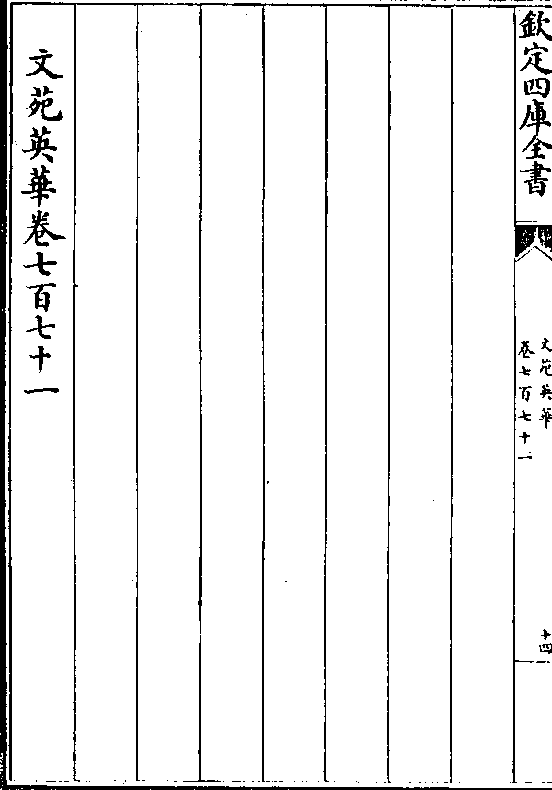 欽定四庫全書
文苑英華
卷七百七十一
十四
文苑英華卷七百七十一